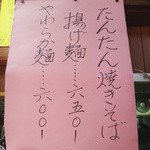 たんたん焼きそば
揚げ麺……六五〇ー
やわらか麺……六〇〇ー